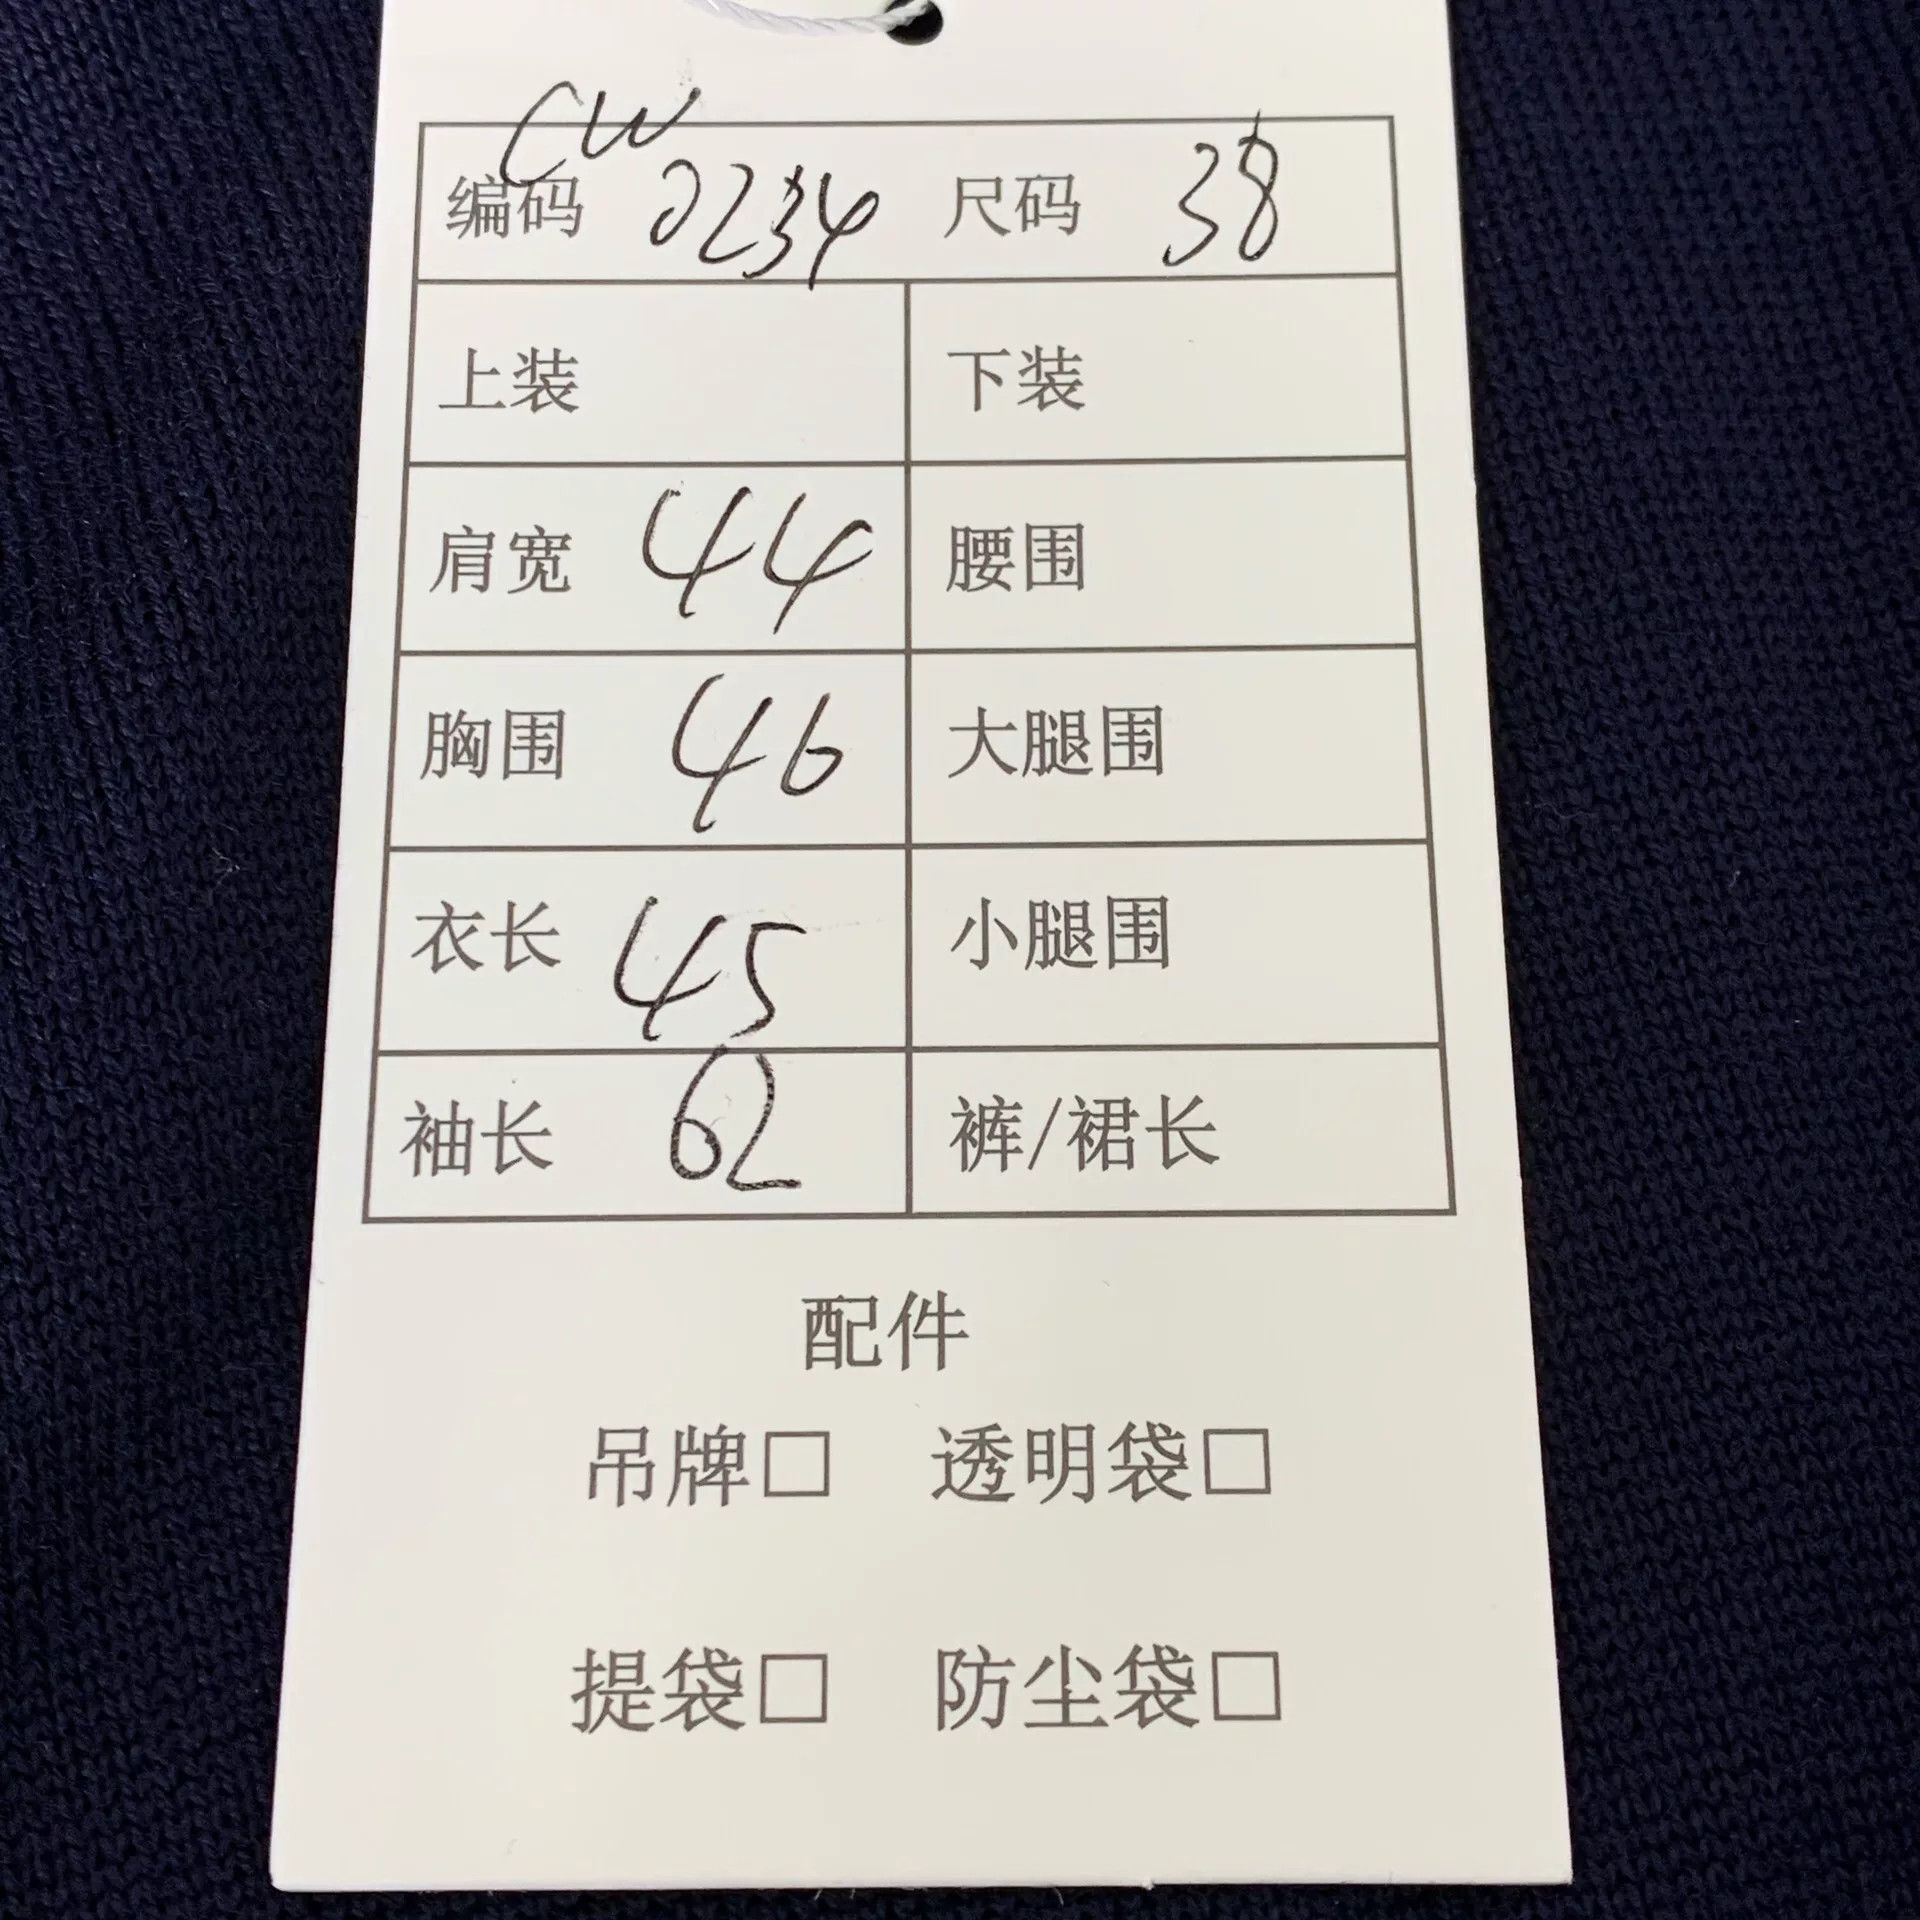 CW
编码 0234 尺码 38
上装 下装
肩宽 44 腰围
胸围 46 大腿围
衣长 45 小腿围
袖长 62 裤/裙长
配件
吊牌□ 透明袋□
提袋□ 防尘袋□